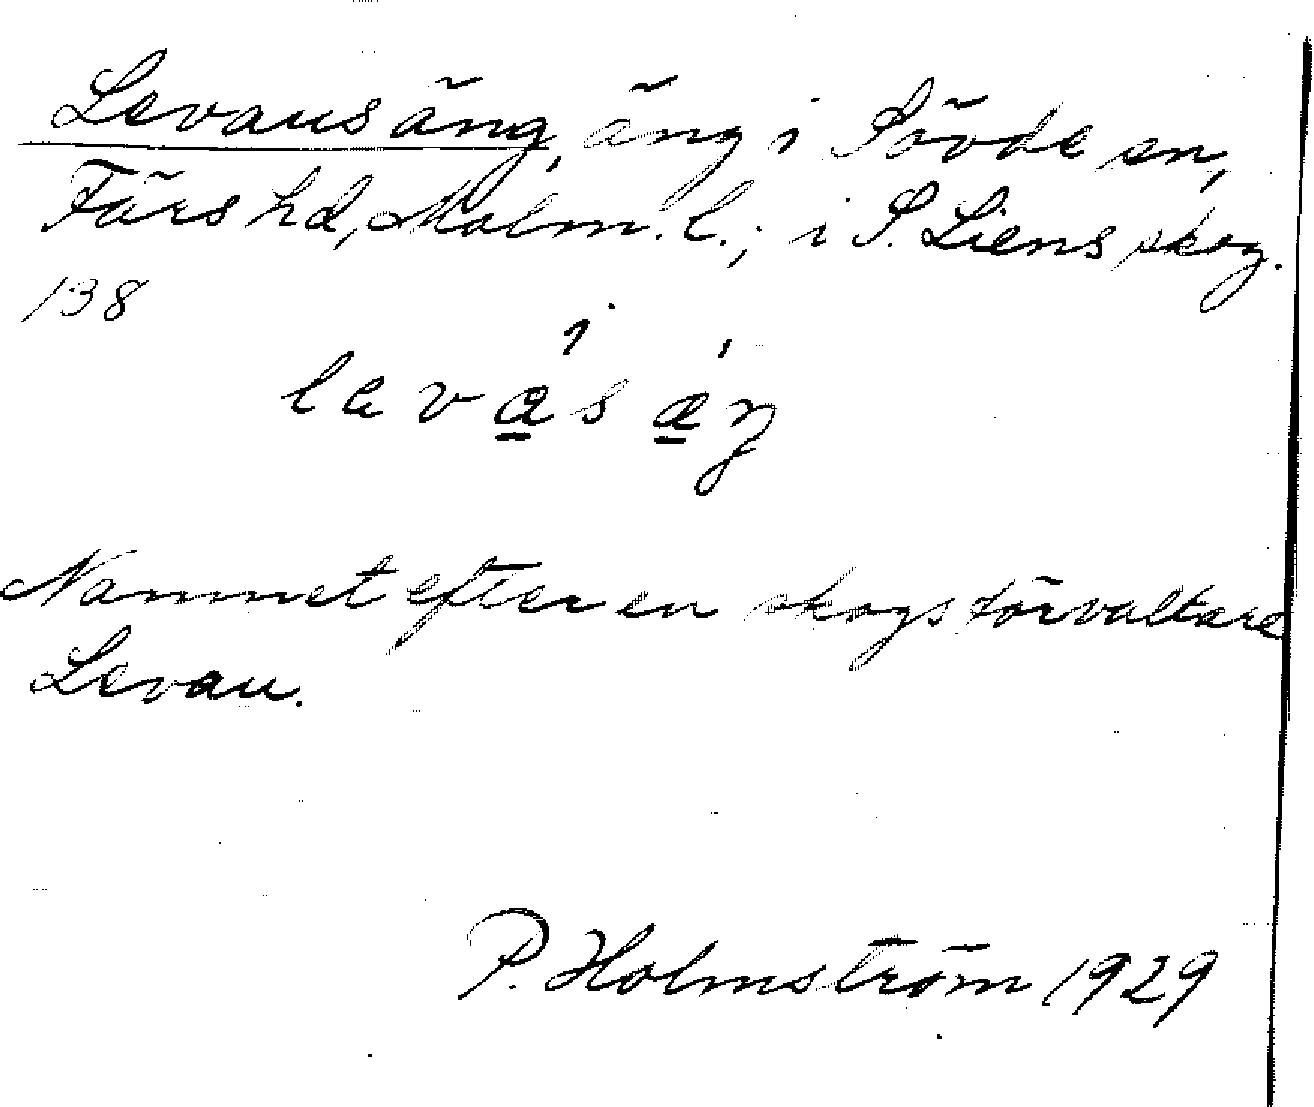 Levaus äng, äng i Sövde sn,
Färs hd, Malm. l.; i S. Liens skog.
138
Namnet efter en skogsförvaltare
Levau.
P. Holmström 1929